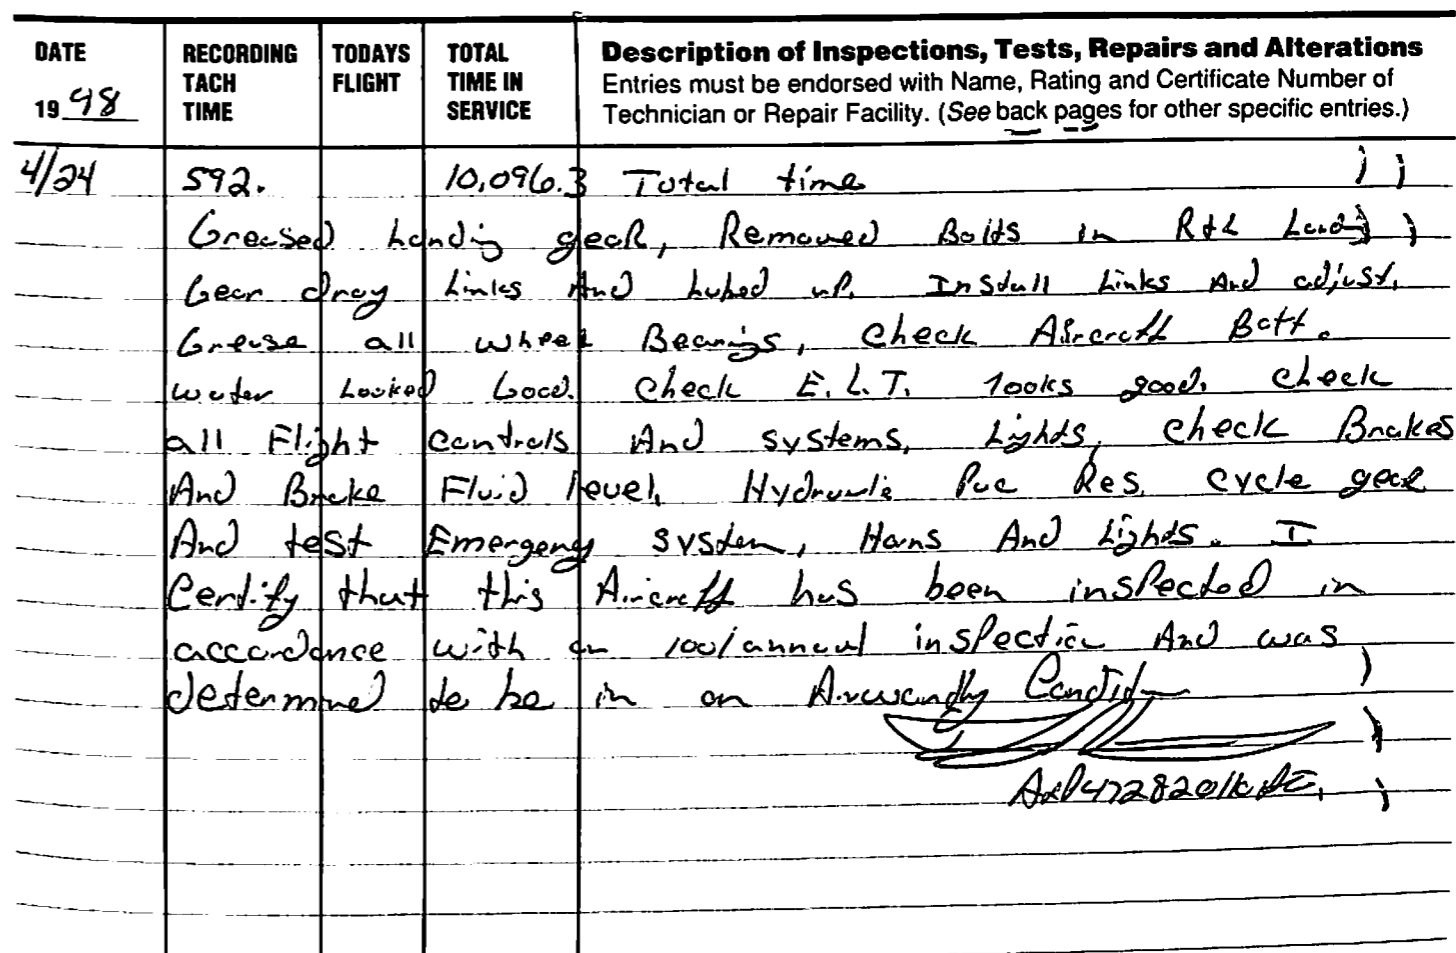 DATE RECORDING TODAYS TOTAL Description of Inspections, Tests, Repairs and Alterations
TACH FLIGHT TIME IN Entries must be endorsed with Name, Rating and Certificate Number of
19 98 TIME SERVICE Technician or Repair Facility. (See back pages for other specific entries.)
4/24 592. 10,096.3 Total time
Greased Landing gear, Removed Bolts in R&L Landing
Gear drag Links And Lubed up. Install Links And adjust.
Grease all wheel Bearings, Check Aircraft Batt.
water Looked Good. Check E.L.T. looks good. Check
all Flight controls And systems, Lights, Check Brakes
And Brake Fluid level, Hydraulic Res. Cycle gear
And test Emergency system, Horns And Lights. I
Certify that this Aircraft has been inspected in
accordance with an 100/annual inspection And was
determined to be in an Airworthy Condition
A&P